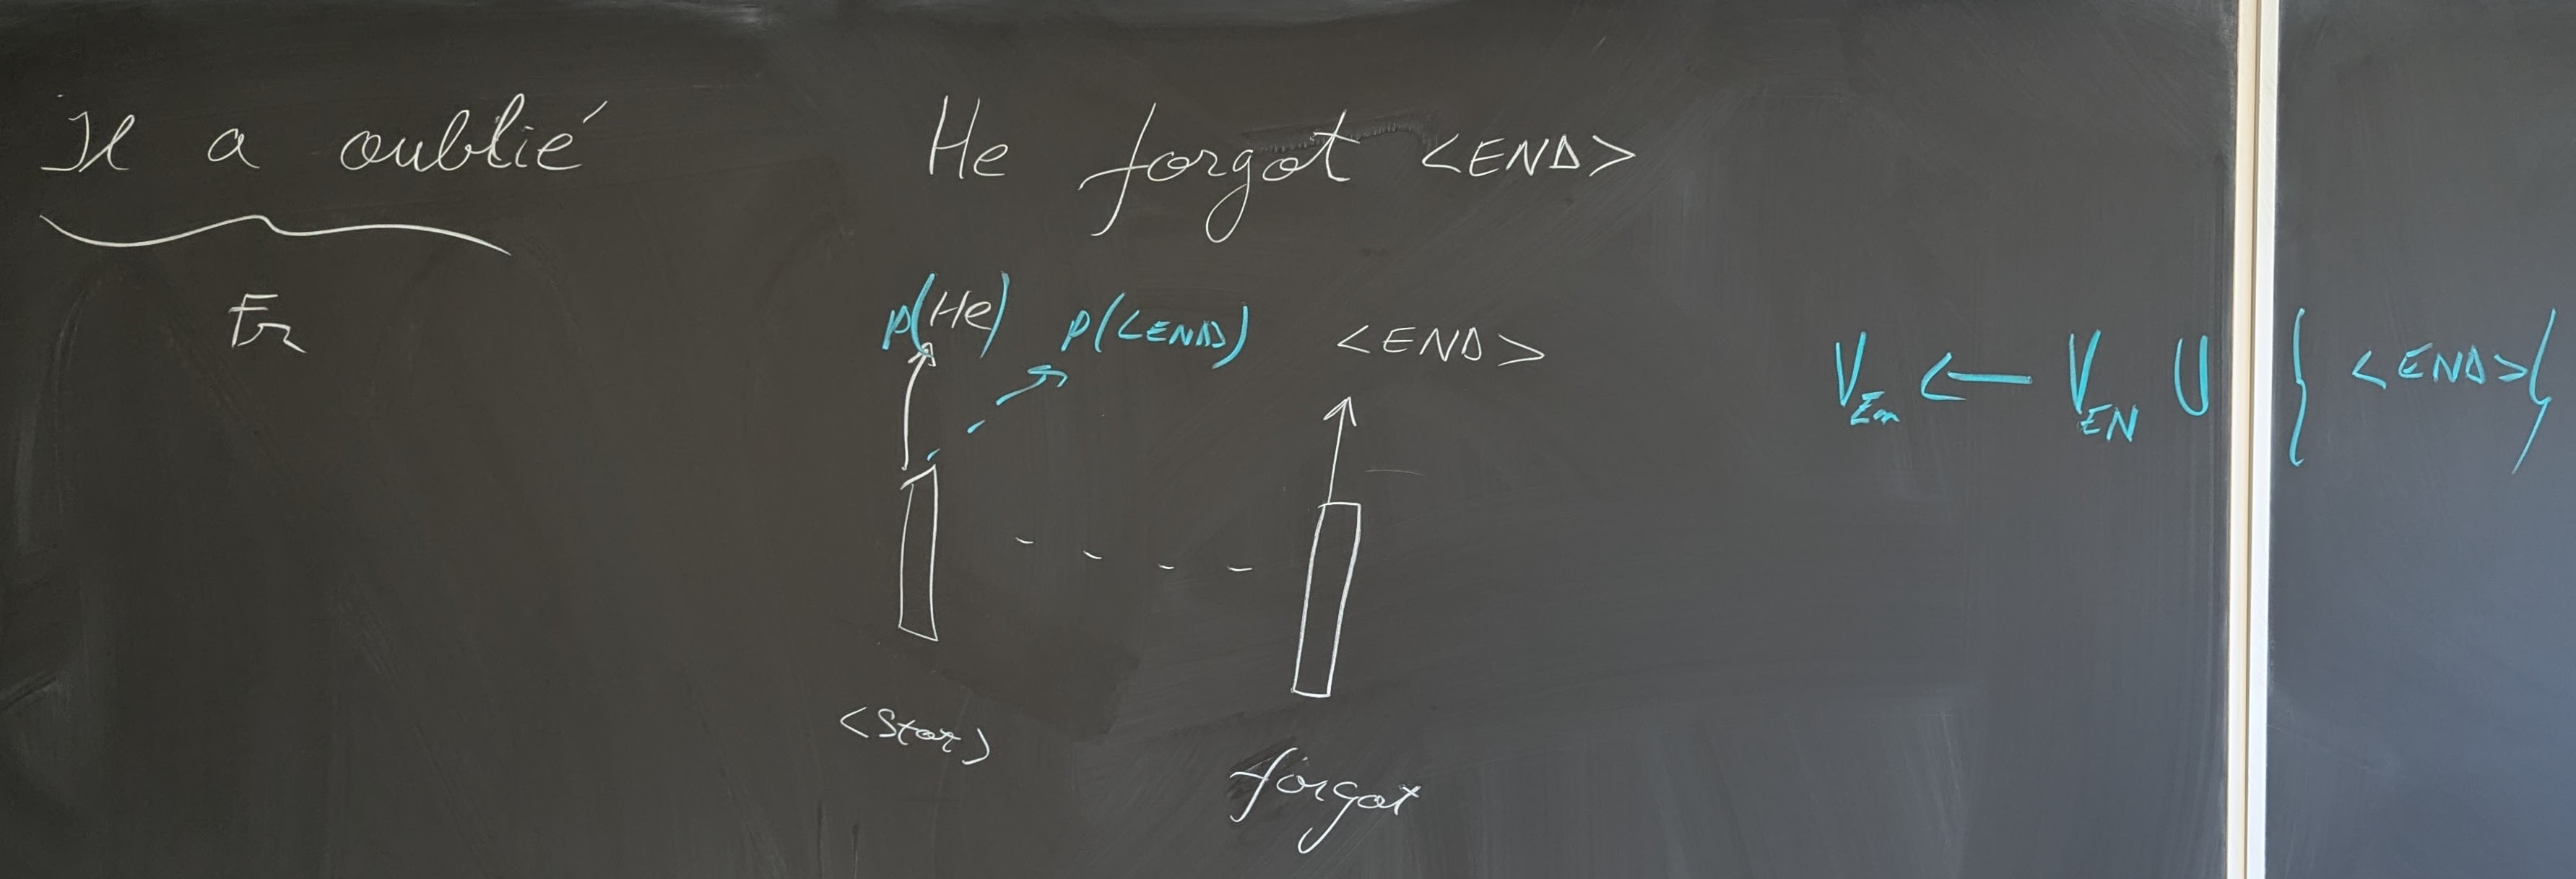 Il a oublié
Fr
He forgot <END>
p(He) p(<END>) <END>
<Star>
forgot
V_En ← V_EN ∪ { <END> }